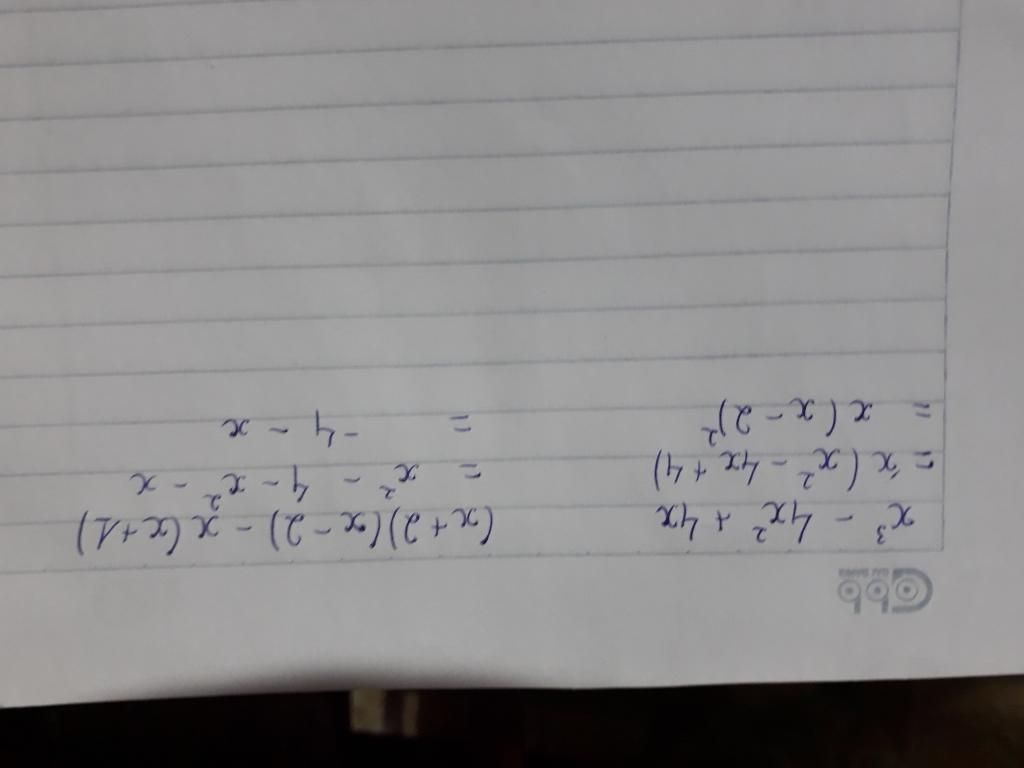 x³ - 4x² + 4x
= x(x² - 4x + 4)
= x(x - 2)²
(x+2)(x-2) - x(x+1)
= x² - 4 - x² - x
= -4 - x